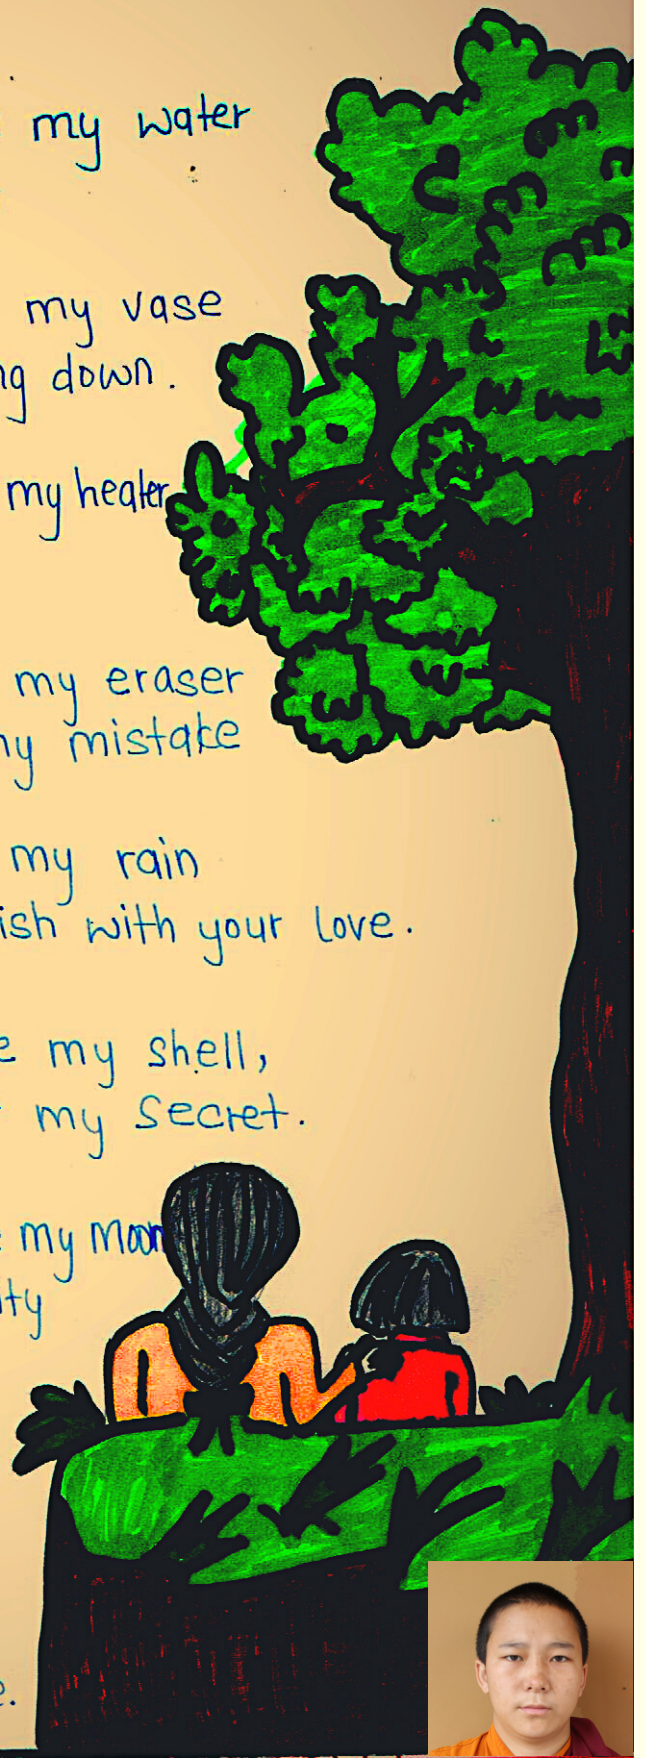 my water
my vase
ng down.
my healer
my eraser
my mistake
my rain
ish with your love.
e my shell,
my secret.
e my Moon
ity
e.